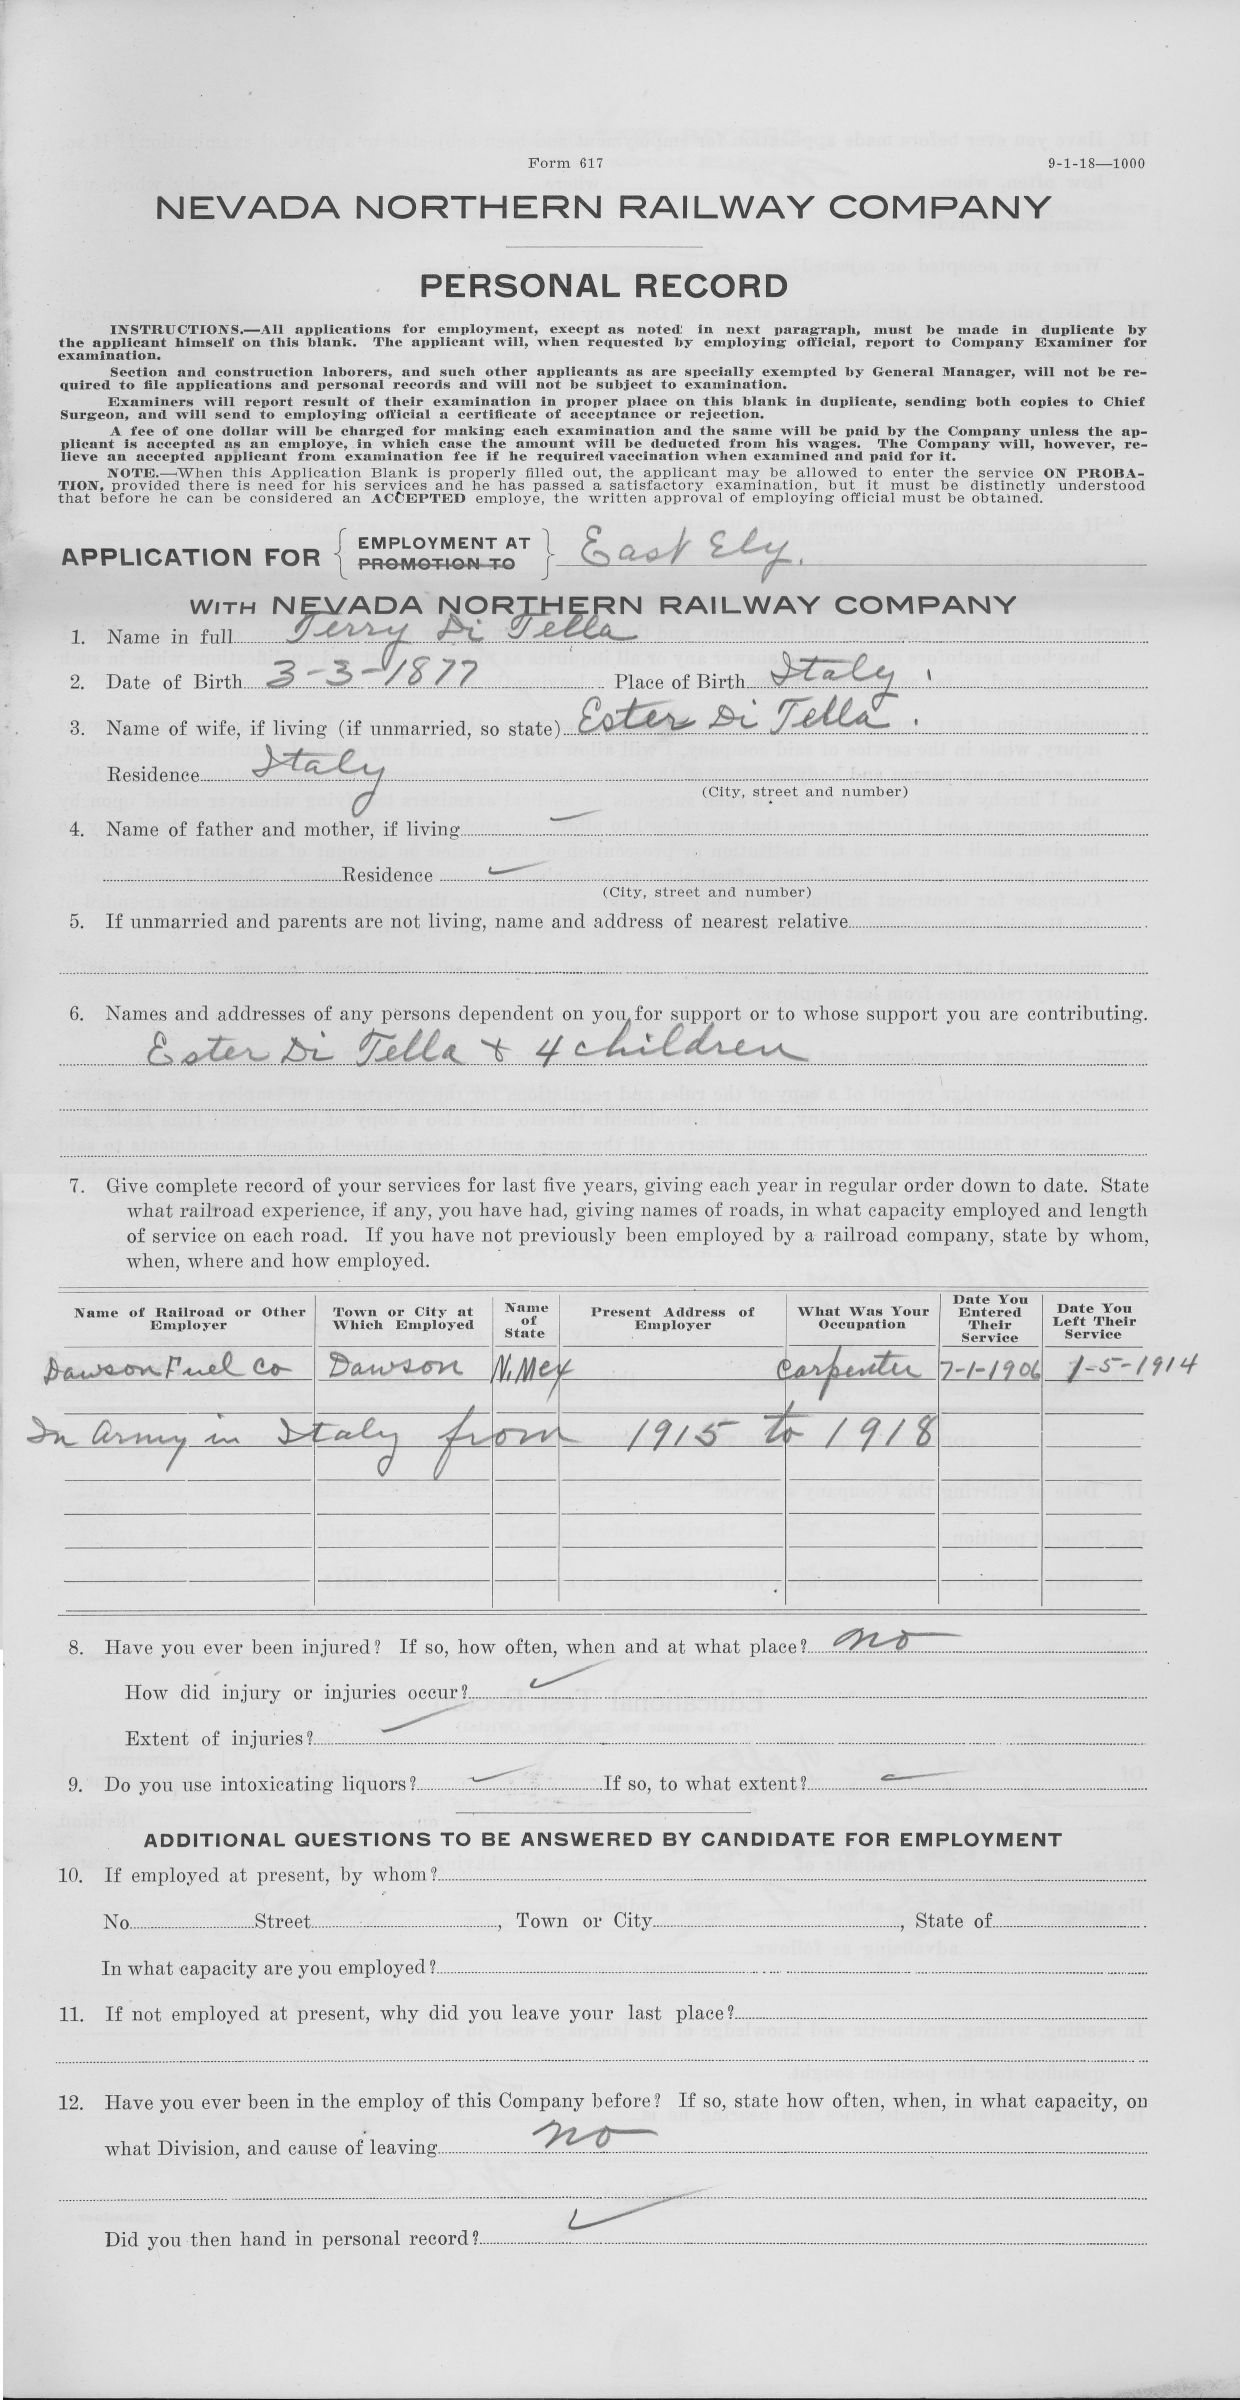 Form 617
9-1-18—1000
NEVADA NORTHERN RAILWAY COMPANY
PERSONAL RECORD
INSTRUCTIONS.—All applications for employment, except as noted in next paragraph, must be made in duplicate by
the applicant himself on this blank. The applicant will, when requested by employing official, report to Company Examiner for
examination.
Section and construction laborers, and such other applicants as are specially exempted by General Manager, will not be re-
quired to file applications and personal records and will not be subject to examination.
Examiners will report result of their examination in proper place on this blank in duplicate, sending both copies to Chief
Surgeon, and will send to employing official a certificate of acceptance or rejection.
A fee of one dollar will be charged for making each examination and the same will be paid by the Company unless the ap-
plicant is accepted as an employe, in which case the amount will be deducted from his wages. The Company will, however, re-
lieve an accepted applicant from examination fee if he required vaccination when examined and paid for it.
NOTE.—When this Application Blank is properly filled out, the applicant may be allowed to enter the service ON PROBA-
TION, provided there is need for his services and he has passed a satisfactory examination, but it must be distinctly understood
that before he can be considered an ACCEPTED employe, the written approval of employing official must be obtained.
APPLICATION FOR { EMPLOYMENT AT } East Ely.
PROMOTION TO
WITH NEVADA NORTHERN RAILWAY COMPANY
1. Name in full Terry Di Tella
2. Date of Birth 3-3-1877 Place of Birth Italy.
3. Name of wife, if living (if unmarried, so state) Ester Di Tella.
Residence Italy
(City, street and number)
4. Name of father and mother, if living —
Residence ✓
(City, street and number)
5. If unmarried and parents are not living, name and address of nearest relative
6. Names and addresses of any persons dependent on you for support or to whose support you are contributing.
Ester Di Tella & 4 children
7. Give complete record of your services for last five years, giving each year in regular order down to date. State
what railroad experience, if any, you have had, giving names of roads, in what capacity employed and length
of service on each road. If you have not previously been employed by a railroad company, state by whom,
when, where and how employed.
Name of Railroad or Other Employer Town or City at Which Employed Name of State Present Address of Employer What Was Your Occupation Date You Entered Their Service Date You Left Their Service
Dawson Fuel Co Dawson N. Mex Carpenter 7-1-1906 1-5-1914
In Army in Italy from 1915 to 1918
8. Have you ever been injured? If so, how often, when and at what place? no
How did injury or injuries occur? ✓
Extent of injuries? ✓
9. Do you use intoxicating liquors? ✓ If so, to what extent? ✓
ADDITIONAL QUESTIONS TO BE ANSWERED BY CANDIDATE FOR EMPLOYMENT
10. If employed at present, by whom?
No. Street , Town or City , State of
In what capacity are you employed?
11. If not employed at present, why did you leave your last place?
12. Have you ever been in the employ of this Company before? If so, state how often, when, in what capacity, on
what Division, and cause of leaving no
Did you then hand in personal record? ✓